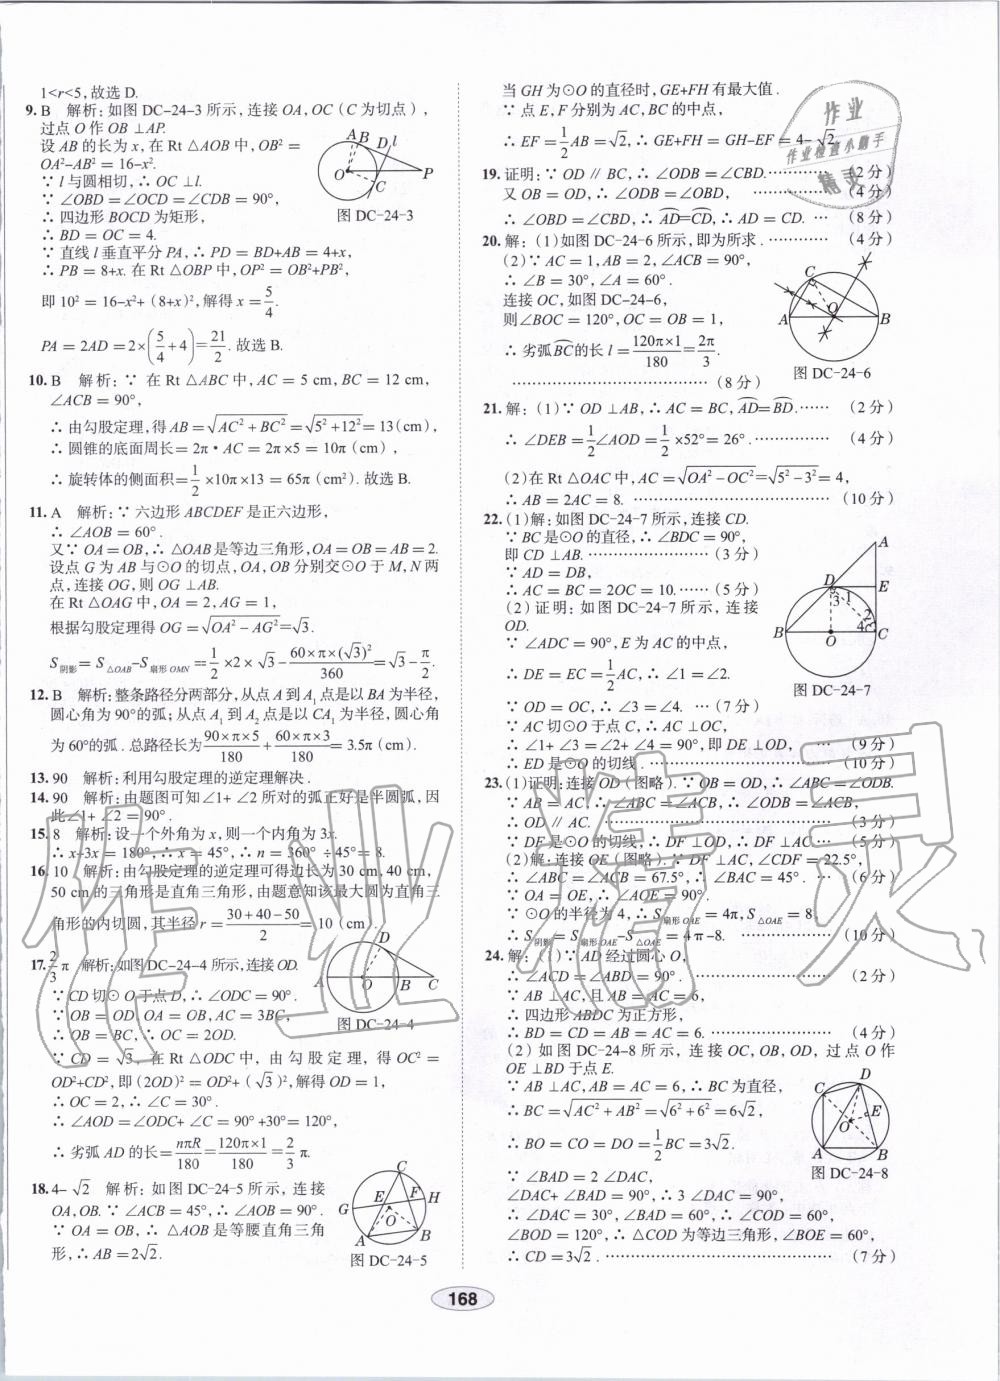 1<r<5,故选 D.
9. B 解析:如图 DC-24-3 所示,连接 OA,OC(C 为切点),
过点 O 作 OB⊥AP.
设 AB 的长为 x,在 Rt△AOB 中,OB²=
OA²-AB²=16-x².
∵ l 与圆相切,∴ OC⊥l.
∵ ∠OBD=∠OCD=∠CDB=90°,
∴ 四边形 BOCD 为矩形,
∴ BD=OC=4.
图 DC-24-3
∵ 直线 l 垂直平分 PA,∴ PD=BD+AB=4+x,
∴ PB=8+x. 在 Rt△OBP 中,OP²=OB²+PB²,
即 10²=16-x²+(8+x)²,解得 x=5/4.
PA=2AD=2×(5/4+4)=21/2. 故选 B.
10. B 解析:∵ 在 Rt△ABC 中,AC=5 cm,BC=12 cm,
∠ACB=90°,
∴ 由勾股定理,得 AB=√(AC²+BC²)=√(5²+12²)=13(cm),
∴ 圆锥的底面周长=2π·AC=2π×5=10π(cm),
∴ 旋转体的侧面积=1/2×10π×13=65π(cm²). 故选 B.
11. A 解析:∵ 六边形 ABCDEF 是正六边形,
∴ ∠AOB=60°.
又∵ OA=OB,∴ △OAB 是等边三角形,OA=OB=AB=2.
设点 G 为 AB 与⊙O 的切点,OA,OB 分别交⊙O 于 M,N 两
点,连接 OG,则 OG⊥AB.
在 Rt△OAG 中,OA=2,AG=1,
根据勾股定理得 OG=√(OA²-AG²)=√3.
S阴影=S△OAB-S扇形OMN=1/2×2×√3-60×π×(√3)²/360=√3-π/2.
12. B 解析:整条路径分两部分,从点 A 到 A₁ 点是以 BA 为半径,
圆心角为 90°的弧;从点 A₁ 到 A₂ 点是以 CA₁ 为半径,圆心角
为 60°的弧. 总路径长为 90×π×5/180+60×π×3/180=3.5π(cm).
13. 90 解析:利用勾股定理的逆定理解决.
14. 90 解析:由题图可知∠1+∠2 所对的弧正好是半圆弧,因
此∠1+∠2=90°.
15. 8 解析:设一个外角为 x,则一个内角为 3x.
∴ x+3x=180°,∴ x=45°,∴ n=360°÷45°=8.
16. 10 解析:由勾股定理的逆定理可得边长为 30 cm,40 cm,
50 cm 的三角形是直角三角形,由题意知该最大圆为直角三
角形的内切圆,其半径 r=(30+40-50)/2=10(cm).
17. 2/3π 解析:如图 DC-24-4 所示,连接 OD.
∵ CD 切⊙O 于点 D,∴ ∠ODC=90°.
∵ OB=OD,OA=OB,AC=3BC,
∴ OB=BC,∴ OC=2OD.
图 DC-24-4
∵ CD=√3,在 Rt△ODC 中,由勾股定理,得 OC²=
OD²+CD²,即(2OD)²=OD²+(√3)²,解得 OD=1,
∴ OC=2,∴ ∠C=30°.
∴ ∠AOD=∠ODC+∠C=90°+30°=120°,
∴ 劣弧 AD 的长=nπR/180=120π×1/180=2/3π.
18. 4-√2 解析:如图 DC-24-5 所示,连接
OA,OB. ∵ ∠ACB=45°,∴ ∠AOB=90°.
∵ OA=OB,∴ △AOB 是等腰直角三角
形,∴ AB=2√2.
图 DC-24-5
当 GH 为⊙O 的直径时,GE+FH 有最大值.
∵ 点 E,F 分别为 AC,BC 的中点,
∴ EF=1/2AB=√2,∴ GE+FH=GH-EF=4-√2.
19. 证明:∵ OD∥BC,∴ ∠ODB=∠CBD.…………(2分)
又 OB=OD,∴ ∠ODB=∠OBD,…………(4分)
∴ ∠OBD=∠CBD,∴ AD=CD,∴ AD=CD. …(8分)
20. 解:(1)如图 DC-24-6 所示,即为所求.…………(4分)
(2)∵ AC=1,AB=2,∠ACB=90°,
∴ ∠B=30°,∠A=60°.
连接 OC,如图 DC-24-6,
则∠BOC=120°,OC=OB=1,
∴ 劣弧BC的长 l=120π×1/180=2π/3.
……………………………(8分)
图 DC-24-6
21. 解:(1)∵ OD⊥AB,∴ AC=BC,AD=BD.……(2分)
∴ ∠DEB=1/2∠AOD=1/2×52°=26°.……………(4分)
(2)在 Rt△OAC 中,AC=√(OA²-OC²)=√(5²-3²)=4,
∴ AB=2AC=8. ……………………………(10分)
22. (1)解:如图 DC-24-7 所示,连接 CD.
∵ BC 是⊙O 的直径,∴ ∠BDC=90°,
即 CD⊥AB.…………………(3分)
∵ AD=DB,
∴ AC=BC=2OC=10.……(5分)
(2)证明:如图 DC-24-7 所示,连接
OD.
∵ ∠ADC=90°,E 为 AC 的中点,
∴ DE=EC=1/2AC,∴ ∠1=∠2.
图 DC-24-7
∵ OD=OC,∴ ∠3=∠4. …(7分)
∵ AC 切⊙O 于点 C,∴ AC⊥OC,
∴ ∠1+∠3=∠2+∠4=90°,即 DE⊥OD, …(9分)
∴ ED 是⊙O 的切线.……………………(10分)
23. (1)证明:连接 OD(图略). ∵ OB=OD,∴ ∠ABC=∠ODB.
∵ AB=AC,∴ ∠ABC=∠ACB,∴ ∠ODB=∠ACB,
∴ OD∥AC. ……………………………(3分)
∵ DF 是⊙O 的切线,∴ DF⊥OD,∴ DF⊥AC. …(5分)
(2)解:连接 OE(图略). ∵ DF⊥AC,∠CDF=22.5°,
∴ ∠ABC=∠ACB=67.5°,∴ ∠BAC=45°. …(6分)
∵ OA=OE,∴ ∠AOE=90°.
∵ ⊙O 的半径为 4,∴ S扇形OAE=4π,S△OAE=8.
∴ S阴影=S扇形OAE-S△OAE=4π-8. ……………(10分)
24. 解:(1)∵ AD 经过圆心 O,
∴ ∠ACD=∠ABD=90°.……………………(2分)
∵ AB⊥AC,且 AB=AC=6,
∴ 四边形 ABDC 为正方形,
∴ BD=CD=AB=AC=6.……………………(4分)
(2)如图 DC-24-8 所示,连接 OC,OB,OD,过点 O 作
OE⊥BD 于点 E.
∵ AB⊥AC,AB=AC=6,∴ BC 为直径,
∴ BC=√(AC²+AB²)=√(6²+6²)=6√2,
∴ BO=CO=DO=1/2BC=3√2.
∵ ∠BAD=2∠DAC,
图 DC-24-8
∠DAC+∠BAD=90°,∴ 3∠DAC=90°,
∴ ∠DAC=30°,∠BAD=60°,∴ ∠COD=60°,
∠BOD=120°,∴ △COD 为等边三角形,∠BOE=60°,
∴ CD=3√2.……………………………………(7分)
168
作业
作业检查小助手
精灵
作业精灵